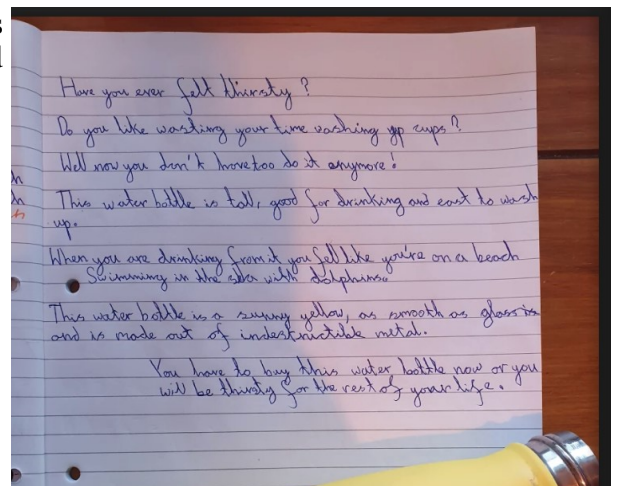 Have you ever felt thirsty?
Do you like wasting your time washing up cups?
Well now you don't have too do it anymore!
This water bottle is tall, good for drinking and east to wash
up.
When you are drinking from it you fell like you're on a beach
Swimming in the sea with dolphins.
This water bottle is a sunny yellow, as smooth as glass is
and is made out of indestructible metal.
You have to buy this water bottle now or you
will be thirsty for the rest of your life.